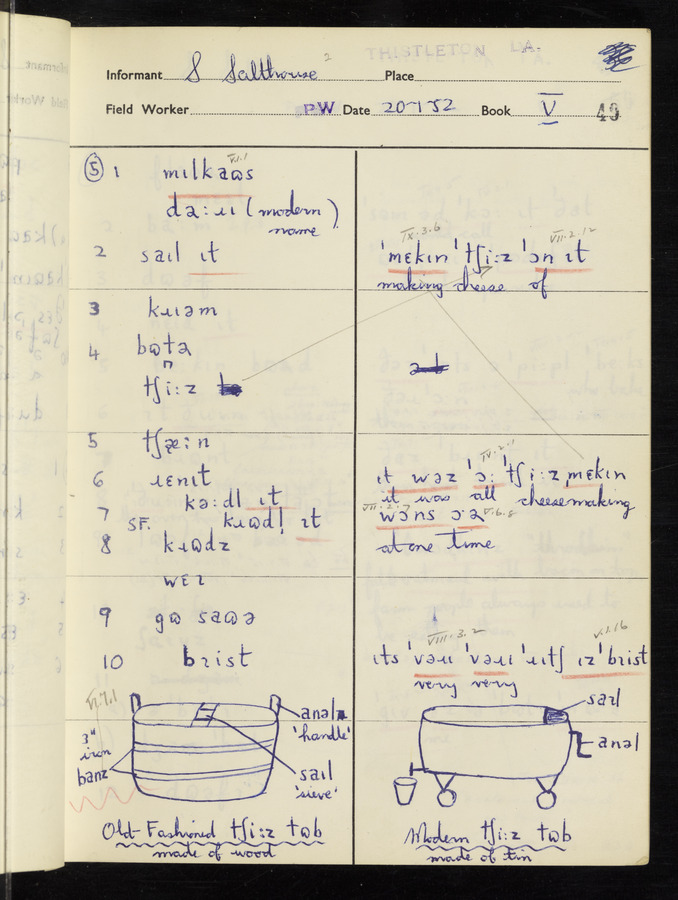 THISTLETON LA.
Informant S Salthouse 2 Place
Field Worker P.W Date 20-1-52 Book V 49
⑤ 1 mɪlkaɷs VI.1
da:ɹɪ (modern
name)
2 saɪl ɪt
3 kɹɪəm
4 bɷtə
n
tʃi:z
5 tʃæ:n
6 ɹɛnɪt
7 kə:dl ɪt
SF. kɹɷdl ɪt
8 kɹɷdz
wɛɪ
9 gɷ saɷə
10 bɹist
IX.3.6 VII.2.12
'mɛkɪn 'tʃi:z 'ɔn ɪt
making cheese of
ɪt wəz 'ɔ: 'tʃi:z mɛkɪn
it was all cheesemaking
wɔns
at one time
VIII.3.2 V.1.16
ɪts 'vəɹɪ 'vəɹɪ 'ɹɪtʃ ɪz 'bɹist
very very
3"
iron
banz
anəl
'handle'
saɪl
'sieve'
Old-Fashioned tʃi:z tɷb
made of wood
saɪl
anəl
Modern tʃi:z tɷb
made of tin